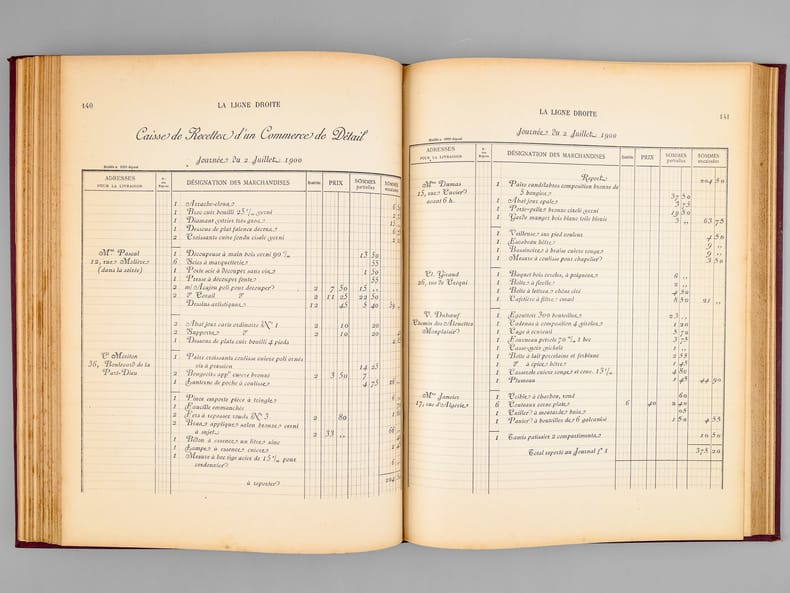 140
LA LIGNE DROITE
Caisse de Recettes d'un Commerce de Détail
Journée du 2 Juillet 1900
ADRESSES
POUR LA LIVRAISON
DÉSIGNATION DES MARCHANDISES
Quantités
PRIX
SOMMES
partielles
SOMMES
encaissées
1 Arrache-clous
1 Broc cuir bouilli 25 c/m verni
1 Diamant
1 Dessous de plat faïence décors
2 Croissants cuivre fondu ciselé verni
Mme Pascal
12, rue Molière
(dans la soirée)
1 Découpeuse à main bois verni 90 c/m 13 50
6 Scies à marqueterie 55
1 Porte scie à découper sans vis 1 50
1 Presse à découper fonte 55
2 m/ Acajou poli pour découper 2 7 50 15
2 d° Corail d° 2 11 25 22 50
Dessins artistiques 12 45 5 40
2 Abat jour carte ordinaire N° 1 2 10 20
2 Supports d° 2 10 20
1 Dessous de plats cuir bouilli 4 pieds
Cie Meriton
36, Boulevard de la
Part-Dieu
1 Paire croissants coulisse cuivre poli ornés
vis à pression 14 25
2 Bougeoirs appt cuivre bronzé 2 3 50 7
1 Lanterne de poche à coulisse 4 75
1 Pince emporte pièce à tringle
1 Faucille emmanchée
2 Fers à repasser ronds N° 3 2 80
2 Bras applique salon bronze verni
à sujet 2 33 „
1 Bidon à essence un litre zinc
1 Lampe à essence cuivre
1 Mesure à bec tige acier de 15 c/m pour
cordonnier
à reporter
141
LA LIGNE DROITE
Journée du 2 Juillet 1900
ADRESSES
POUR LA LIVRAISON
DÉSIGNATION DES MARCHANDISES
Quantités
PRIX
SOMMES
partielles
SOMMES
encaissées
Report 204 50
Mme Dumas
15, rue Cuvier
avant 6 h.
1 Paire candélabres composition bronze de
5 bougies 37 50
1 Abat jour opale 3 75
1 Porte-pelle bronze ciselé verni 19 50
1 Garde manger bois blanc toile bleuie 3 „ 63 75
1 Veilleuse sur pied couleur 4 50
1 Escabeau hêtre 9 „
1 Bassinoire à braise cuivre rouge 9 „
1 Mesure à coulisse pour chapelier 3 50
Ct. Giraud
26, rue de Créqui
1 Baquet bois cercles, à poignées 6 „
1 Boîte à ficelle 2 „
1 Boîte à lettres chêne ciré 4 50
1 Cafetière à filtre émail 8 50 21 „
V. Duboeuf
Chemin des Alouettes
Monplaisir
1 Egouttoir 300 bouteilles 23 „
1 Cadenas à composition 4 viroles 1 20
1 Cage à écureuil 5 70
1 Fourneau pétrole 70 c/m 1 bec 3 75
1 Casse-noix nickelé 1 „
1 Boîte à lait porcelaine et ferblanc 2 55
1 d° à épice hêtre 1 45
1 Casserole cuivre rouge et couv. 15 c/m 4 80
1 Plumeau 1 45 44 90
Mme Janvier
17, rue d'Algérie
1 Crible à charbon, rond 60
6 Couteaux corne plate 6 40 2 40
1 Cuiller à moutarde buis 05
1 Panier à bouteilles de 6 galvanisé 1 50 4 55
1 Tamis pâtissier 2 compartiments 10 50
Total reporté au Journal f° 1 375 20